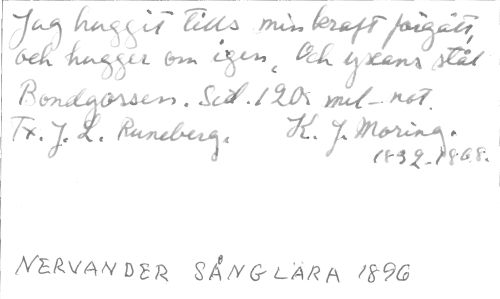 Jag huggit tills min kraft förgått,
och hugger om igen, Och yxans stål
Bondgossen. Sid. 120. mel-not.
Tx. J. L. Runeberg. K. J. Moring.
1832-1868.
NERVANDER SÅNGLÄRA 1896